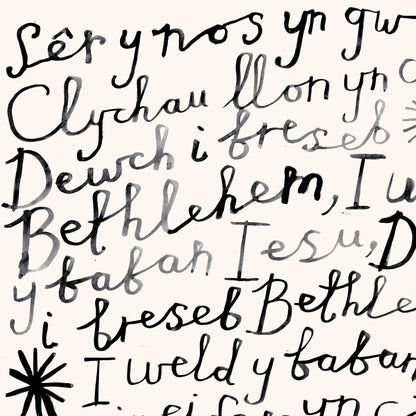 Sêr y nos yn gw
Clychau llon yn c
Dewch i breseb
Bethlehem, I w
y baban Iesu, D
i breseb Bethle
I weld y baban
yn